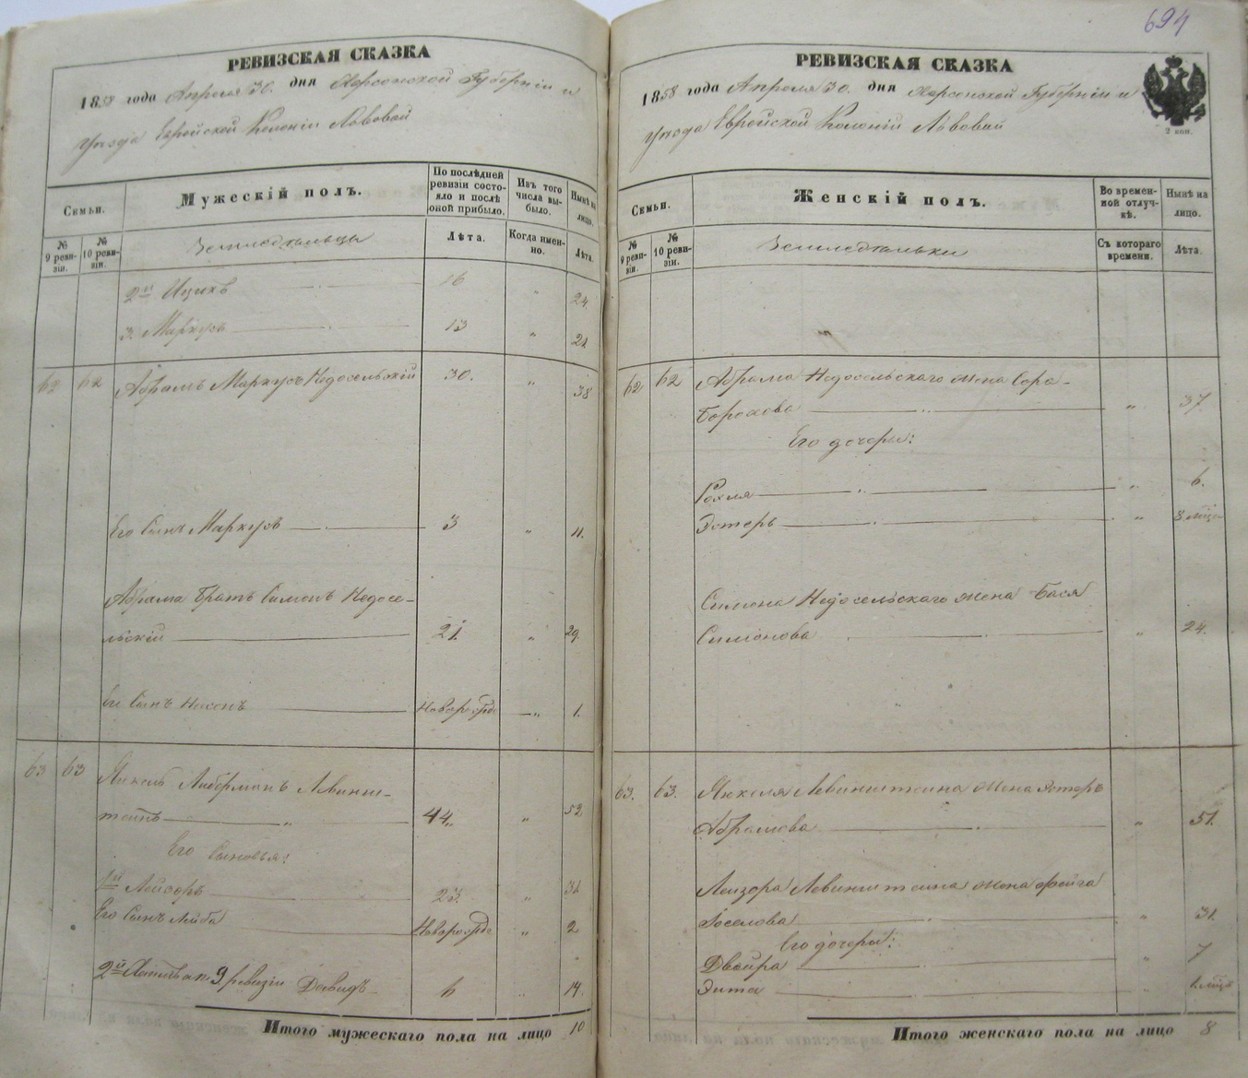 РЕВИЗСКАЯ СКАЗКА
1858 года Апреля 30. дня Херсонской Губерніи и
уезда Еврейской Колоніи Львовой
Семьи.
Мужескій полъ.
По послѣдней ревизіи состояло и послѣ оной прибыло.
Изъ того числа выбыло.
Нынѣ на лицо.
№ 9 ревизіи.
№ 10 ревизіи.
Земледѣльцы
Лѣта.
Когда именно.
Лѣта.
2й Ицикъ 16 " 24
3. Маркусъ 13 " 21
62 62 Абрамъ Маркусъ Недосельскій 30. " 38
Его сынъ Маркусъ 3 " 11.
Абрама братъ Симонъ Недосе-
льскій 21. " 29
Его сынъ Носонъ Новорожд " 1.
63 63 Янкель Либерманъ Левинш-
теинъ " 44. " 52
Его сыновья:
1й Лейзоръ 23. " 31
Его сынъ Лейба Новорожд " 2
2й 9 ревизіи Довидъ 6 " 14.
Итого мужескаго пола на лицо 10
694
РЕВИЗСКАЯ СКАЗКА
1858 года Апреля 30. дня Херсонской Губерніи и
уезда Еврейской Колоніи Львовой
2 коп.
Семьи.
Женскій полъ.
Во временной отлучкѣ.
Нынѣ на лицо.
№ 9 ревизіи.
№ 10 ревизіи.
Земледѣльки
Съ котораго времени.
Лѣта.
62 62 Абрама Недосельскаго жена Сора-
Борохова " 37
Его дочери:
Рохля " 6.
Эстеръ " 8 мѣся
Симона Недосельскаго жена Бася
Симонова " 24.
63. 63. Янкеля Левинштеина жена Эстеръ
Абрамова " 51.
Лейзора Левинштеина жена Фейга
Іоселова " 31.
Его дочери:
Двойра " 7
Энта " 1 мѣся
Итого женскаго пола на лицо 8